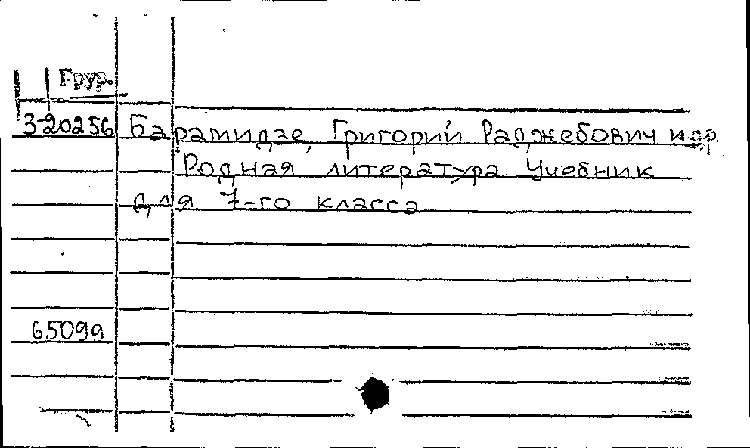 Груз.
3-20256 Барамидзе, Григорий Раджебович и др.
Родная литература Учебник
для 7-го класса
65099